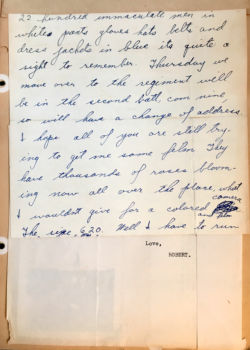 22 hundred immaculate men in
white pants gloves hats belts and
dress jackets in blue its quite a
sight to remember. Thursday we
move over to the regiment well
be in the second batt. com nine
so will have a change of address.
I hope all of you are still try-
ing to get me some felm They
have thousands of roses bloom-
ing now all over the place, what
I wouldn't give for a colored camera
and film
The size 620. Well I have to run
Love,
ROBERT.